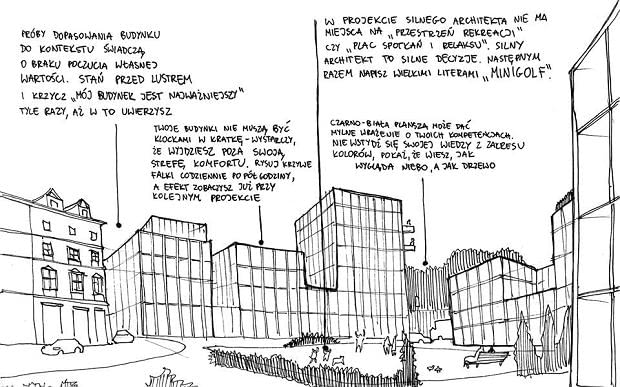 PRÓBY DOPASOWANIA BUDYNKU
DO KONTEKSTU ŚWIADCZĄ
O BRAKU POCZUCIA WŁASNEJ
WARTOŚCI. STAŃ PRZED LUSTREM
I KRZYCZ „MÓJ BUDYNEK JEST NAJWAŻNIEJSZY"
TYLE RAZY, AŻ W TO UWIERZYSZ
TWOJE BUDYNKI NIE MUSZĄ BYĆ
KLOCKAMI W KRATKĘ - WYSTARCZY,
ŻE WYJDZIESZ POZA SWOJĄ
STREFĘ KOMFORTU. RYSUJ KRZYWE
FALKI CODZIENNIE PO PÓŁ GODZINY,
A EFEKT ZOBACZYSZ JUŻ PRZY
KOLEJNYM PROJEKCIE
W PROJEKCIE SILNEGO ARCHITEKTA NIE MA
MIEJSCA NA „PRZESTRZEŃ REKREACJI"
CZY „PLAC SPOTKAŃ I RELAKSU". SILNY
ARCHITEKT TO SILNE DECYZJE. NASTĘPNYM
RAZEM NAPISZ WIELKIMI LITERAMI „MINIGOLF".
CZARNO-BIAŁA PLANSZA MOŻE DAĆ
MYLNE WRAŻENIE O TWOICH KOMPETENCJACH.
NIE WSTYDŹ SIĘ SWOJEJ WIEDZY Z ZAKRESU
KOLORÓW, POKAŻ, ŻE WIESZ, JAK
WYGLĄDA NIEBO, A JAK DRZEWO